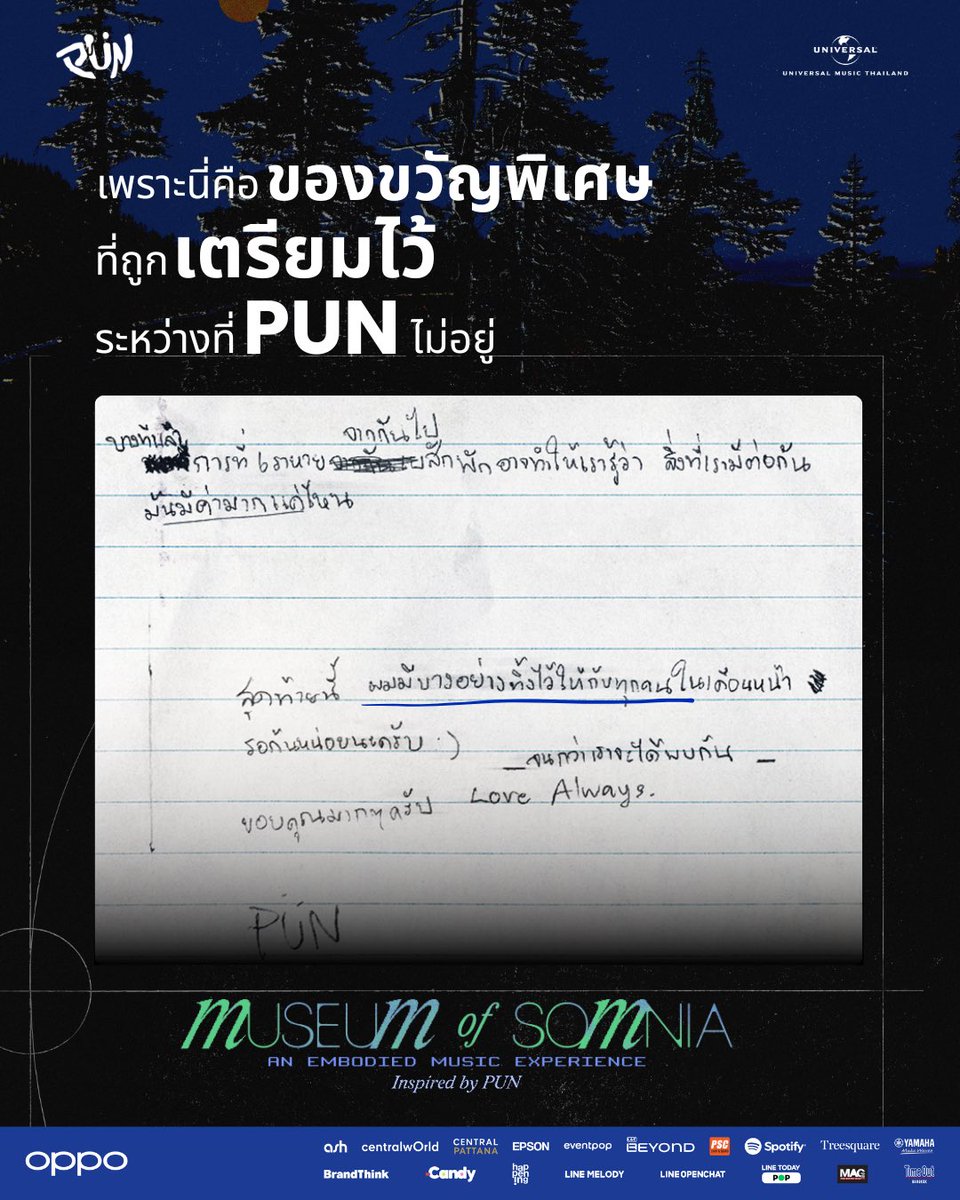 PUN
UNIVERSAL
UNIVERSAL MUSIC THAILAND
เพราะนี่คือ ของขวัญพิเศษ
ที่ถูก เตรียมไว้
ระหว่างที่ PUN ไม่อยู่
จากกันไป
การที่เราหาย สักพัก อาจทำให้เรารู้ว่า สิ่งที่เรามีต่อกัน
มันมีค่ามากแค่ไหน
สุดท้ายนี้ ผมมีบางอย่างทิ้งไว้ให้กับทุกคนในเดือนหน้า
รอกันหน่อยนะครับ :)
_จนกว่าเราจะได้พบกัน _
Love Always.
ขอบคุณมากๆครับ
PUN
MUSEUM of SOMNIA
AN EMBODIED MUSIC EXPERIENCE
Inspired by PUN
oppo
ash centralwOrld CENTRAL PATTANA EPSON eventpop BEYOND PSC Spotify Treesquare YAMAHA
BrandThink Candy hap pen ing LINE MELODY LINE OPENCHAT LINE TODAY POP MAG Time Out